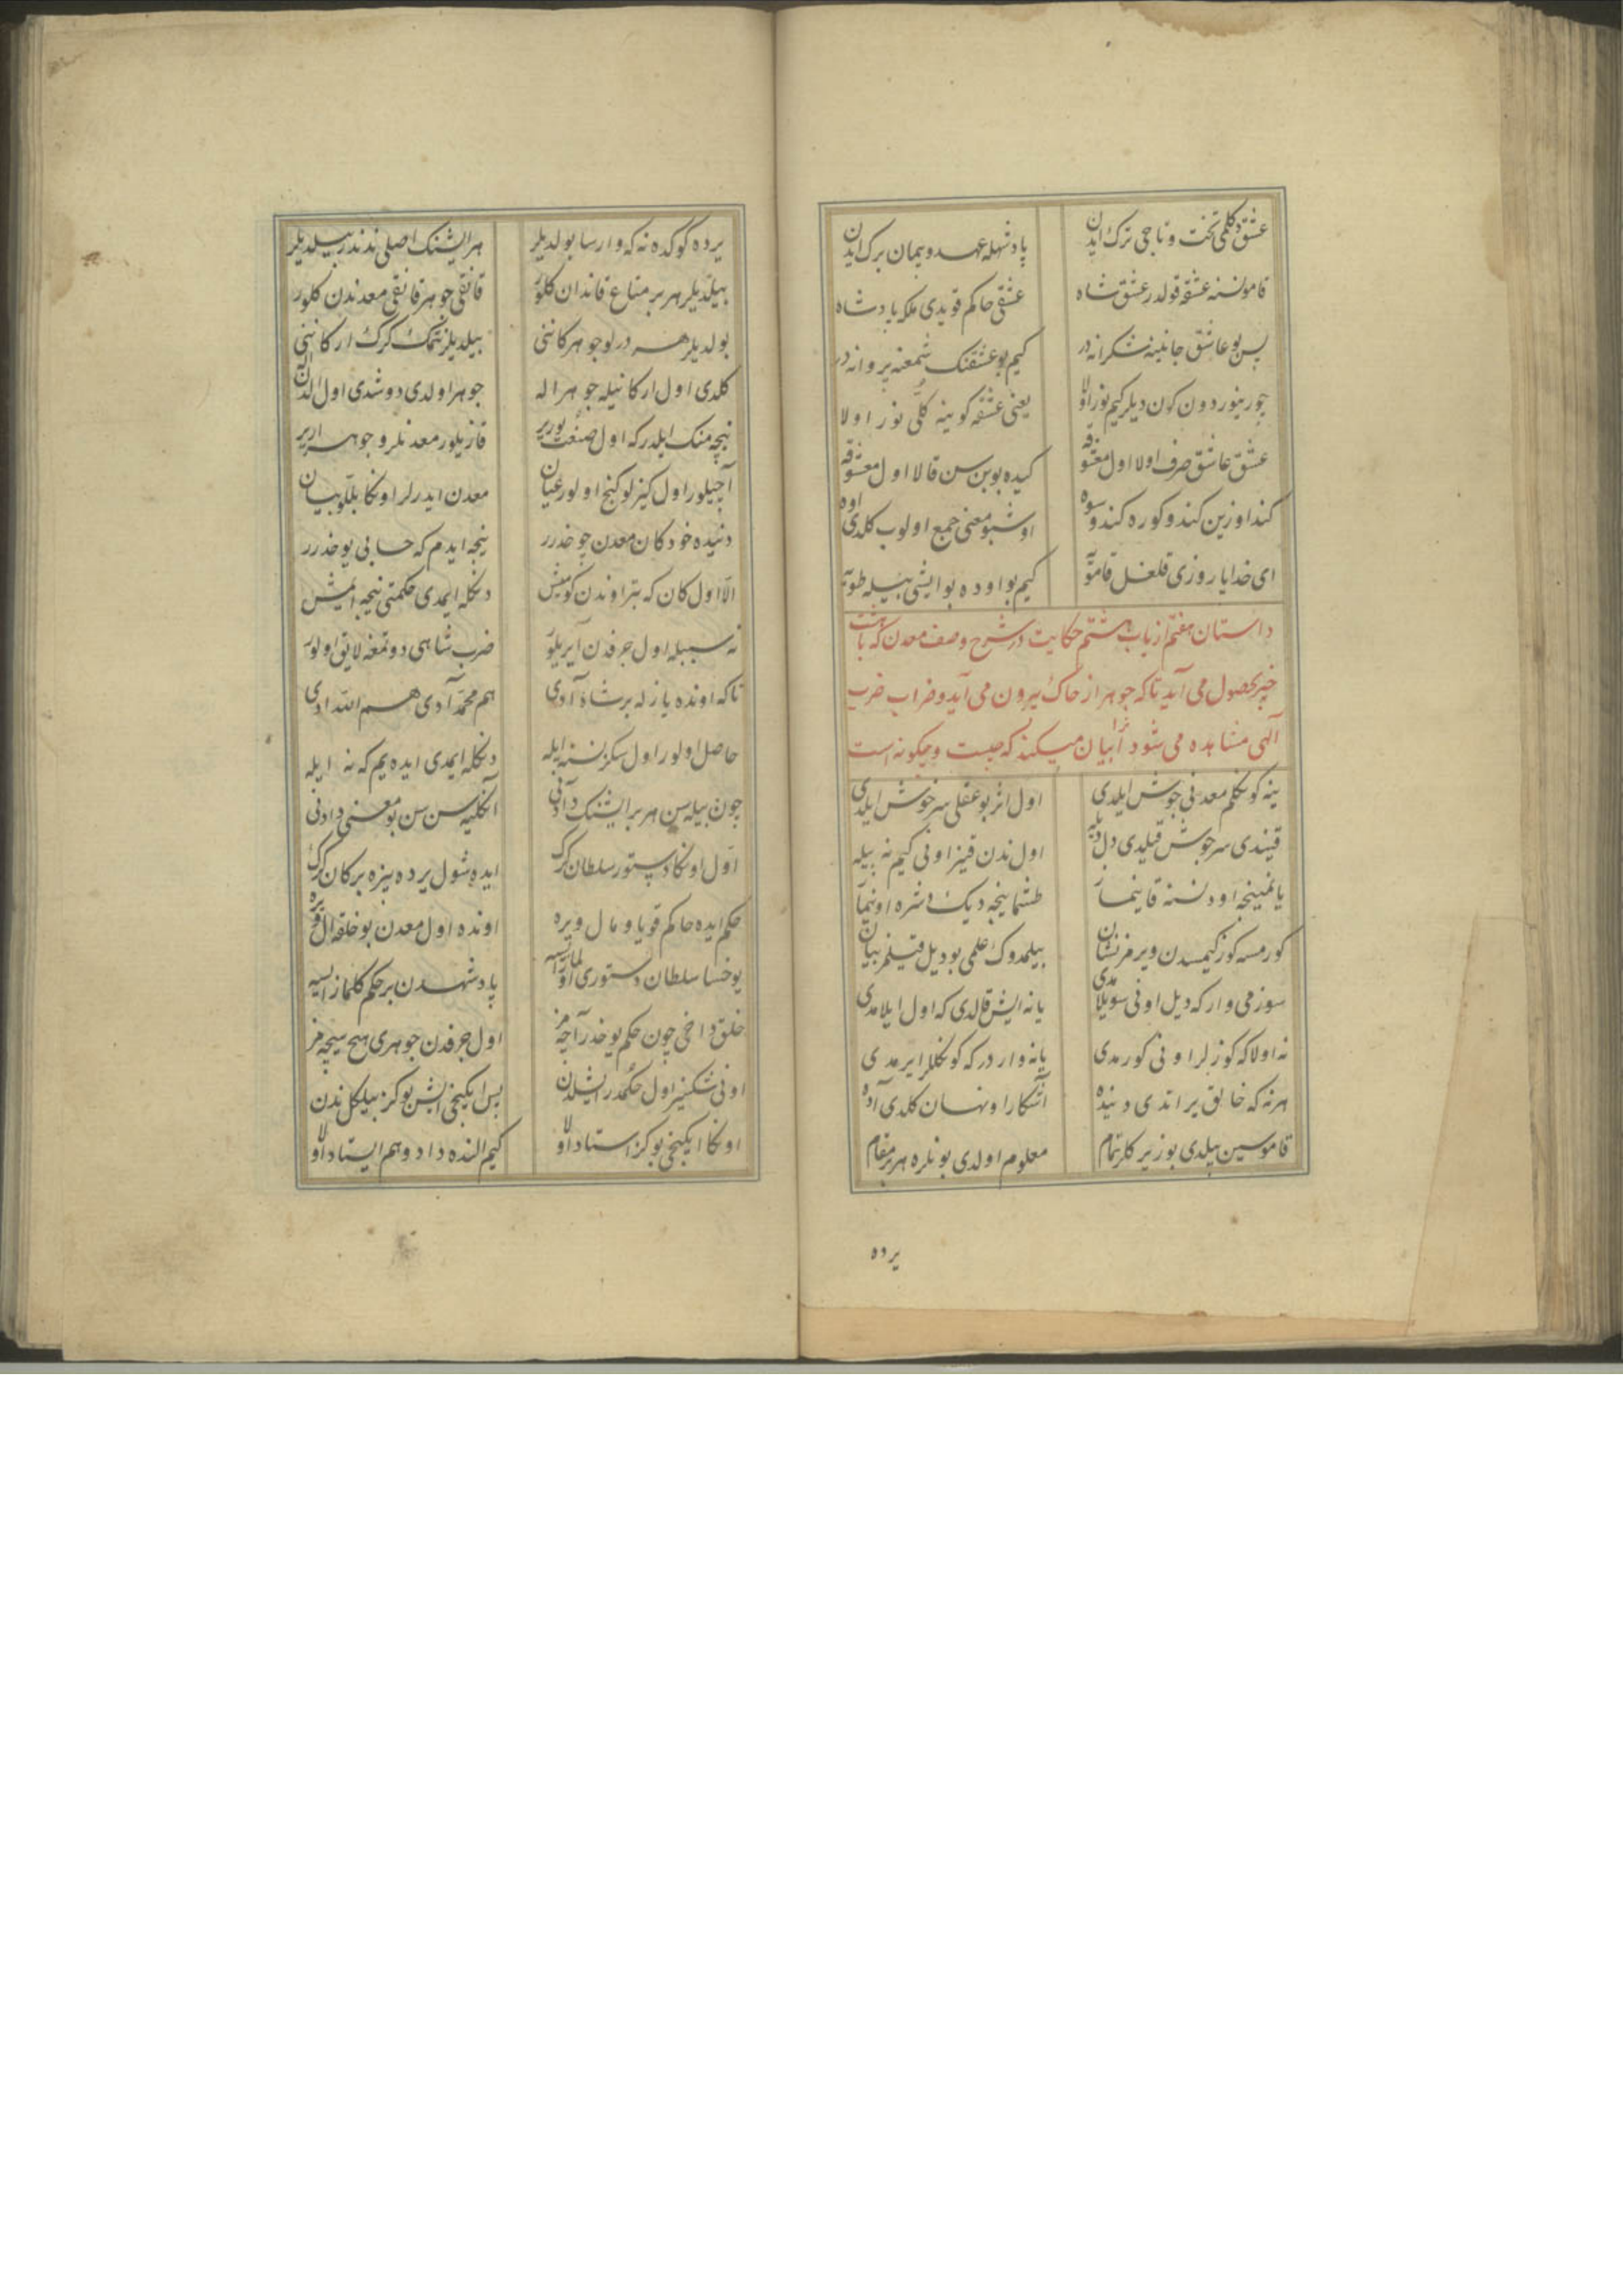 عشق دکلمی تخت و تاجی ترک ایدن پادشهله عهد و پیمان برک ایدن
قامو نسنه عشقه قولدر عشق شاه عشقی حاکم قویدی ملکه پادشاه
پس بو عاشق جانینه شکرانه در کیم بو عشقنک شمعنه پروانه در
یعنی عشقه کوینه کلی نور اولا
عشق عاشق صرف اولا اول معشوقه کیده بو بن سن قالا اول معشوقه
کند اوزین کندو کوره کندو سوه اوشبو معنی جمع اولوب کلدی اوه
ای خدایا روزی قلغل قامویه کیم بو اوده بو ایشی بیله طویه
داستان هفتم از باب هشتم حکایت در شرح وصف معدن که با هشت
چیز بحصول می آید تا که جوهر از خاک بیرون می آید و ضراب ضرب
الهی مشاهده می شود آنرا بیان میکند که چیست و چکونه است
ینه کوکلم معدنی جوش ایلدی اول اثر بو عقلی سرخوش ایلدی
قیندی سرجوش قیلدی دل دیله اول ندن قینر اونی کیم نه بیله
یانمینجه اود نسنه قاینماز طشماینجه دیک دشره اونیماز
کورمسه کوز کیمسدن ویرمز نشان بیلمدوک علمی بو دیل قیلمز بیان
سوز می وار که دیل اونی سویلامدی یا نه ایش قالدی که اول ایلامدی
نه اولا که کوزلر اونی کورمدی یا نه واردر که کوکللر ایرمدی
هر نه که خالق یراتدی دنیده آشکارا و نهان کلدی آده
قاموسین بیلدی بوزیرکلر تمام معلوم اولدی بونلره هر بر مقام
یرده
یرده کوکده نه که وارسا بولدیلر هر ایشنک اصلی ندندر بیلدیلر
بیلدیلر هر بر متاع قاندان کلور قانقی جوهر قانقی معدندن کلور
بولدیلر هر درلو جوهر کاننی بیلدیلر نتمک کرک ارکاننی
کلدی اول ارکانیله جوهر اله جوهر اولدی دوشدی اول الدن اله
نیجه منک ایلدر که اول صنعت یورر قازیلور معدنلر و جوهر ایرر
آچیلور اول کیزلو کنج اولور عیان معدن ایدرلر اونکا بللو بیان
دنیده خود کان معدن چوخدرر نیجه ایدم که حسابی یوخدرر
الا اول کان که بتر اوندن کومش دنکله ایمدی حکمتی نیجه ایمش
نه سببله اول جرفدن آیریلور ضرب شاهی دوتمغه لایق اولور
تا که اونده یازله بر شاه آدی هم محمد آدی هم الله ادی
حاصل اولور اول سکز نسنه ایله دنکله ایمدی ایده یم که نه ایله
چون بیله سن هر بر ایشنک دادنی آنکلیه سن سن بو معنی دادنی
اول اونکا دستور سلطان کرک ایده شول یرده بیزه بر کان کرک
حکم ایده حاکم قویا و مال ویره اونده اول معدن بو خلقه ال ویره
یوخسا سلطان دستوری اولمازایسه پادشهدن بر حکم کلمازایسه
خلق داخی چون حکم یوخدر آچمز اول جرفدن جوهری هیچ سیچمز
اونی شکسیز اول حکمدر ایشلدن پس ایکنجی ایشن بو کز بیلکل ندن
اونکا ایکنجی بو کز استاد اولا کیم النده داد و هم ایستاد اولا